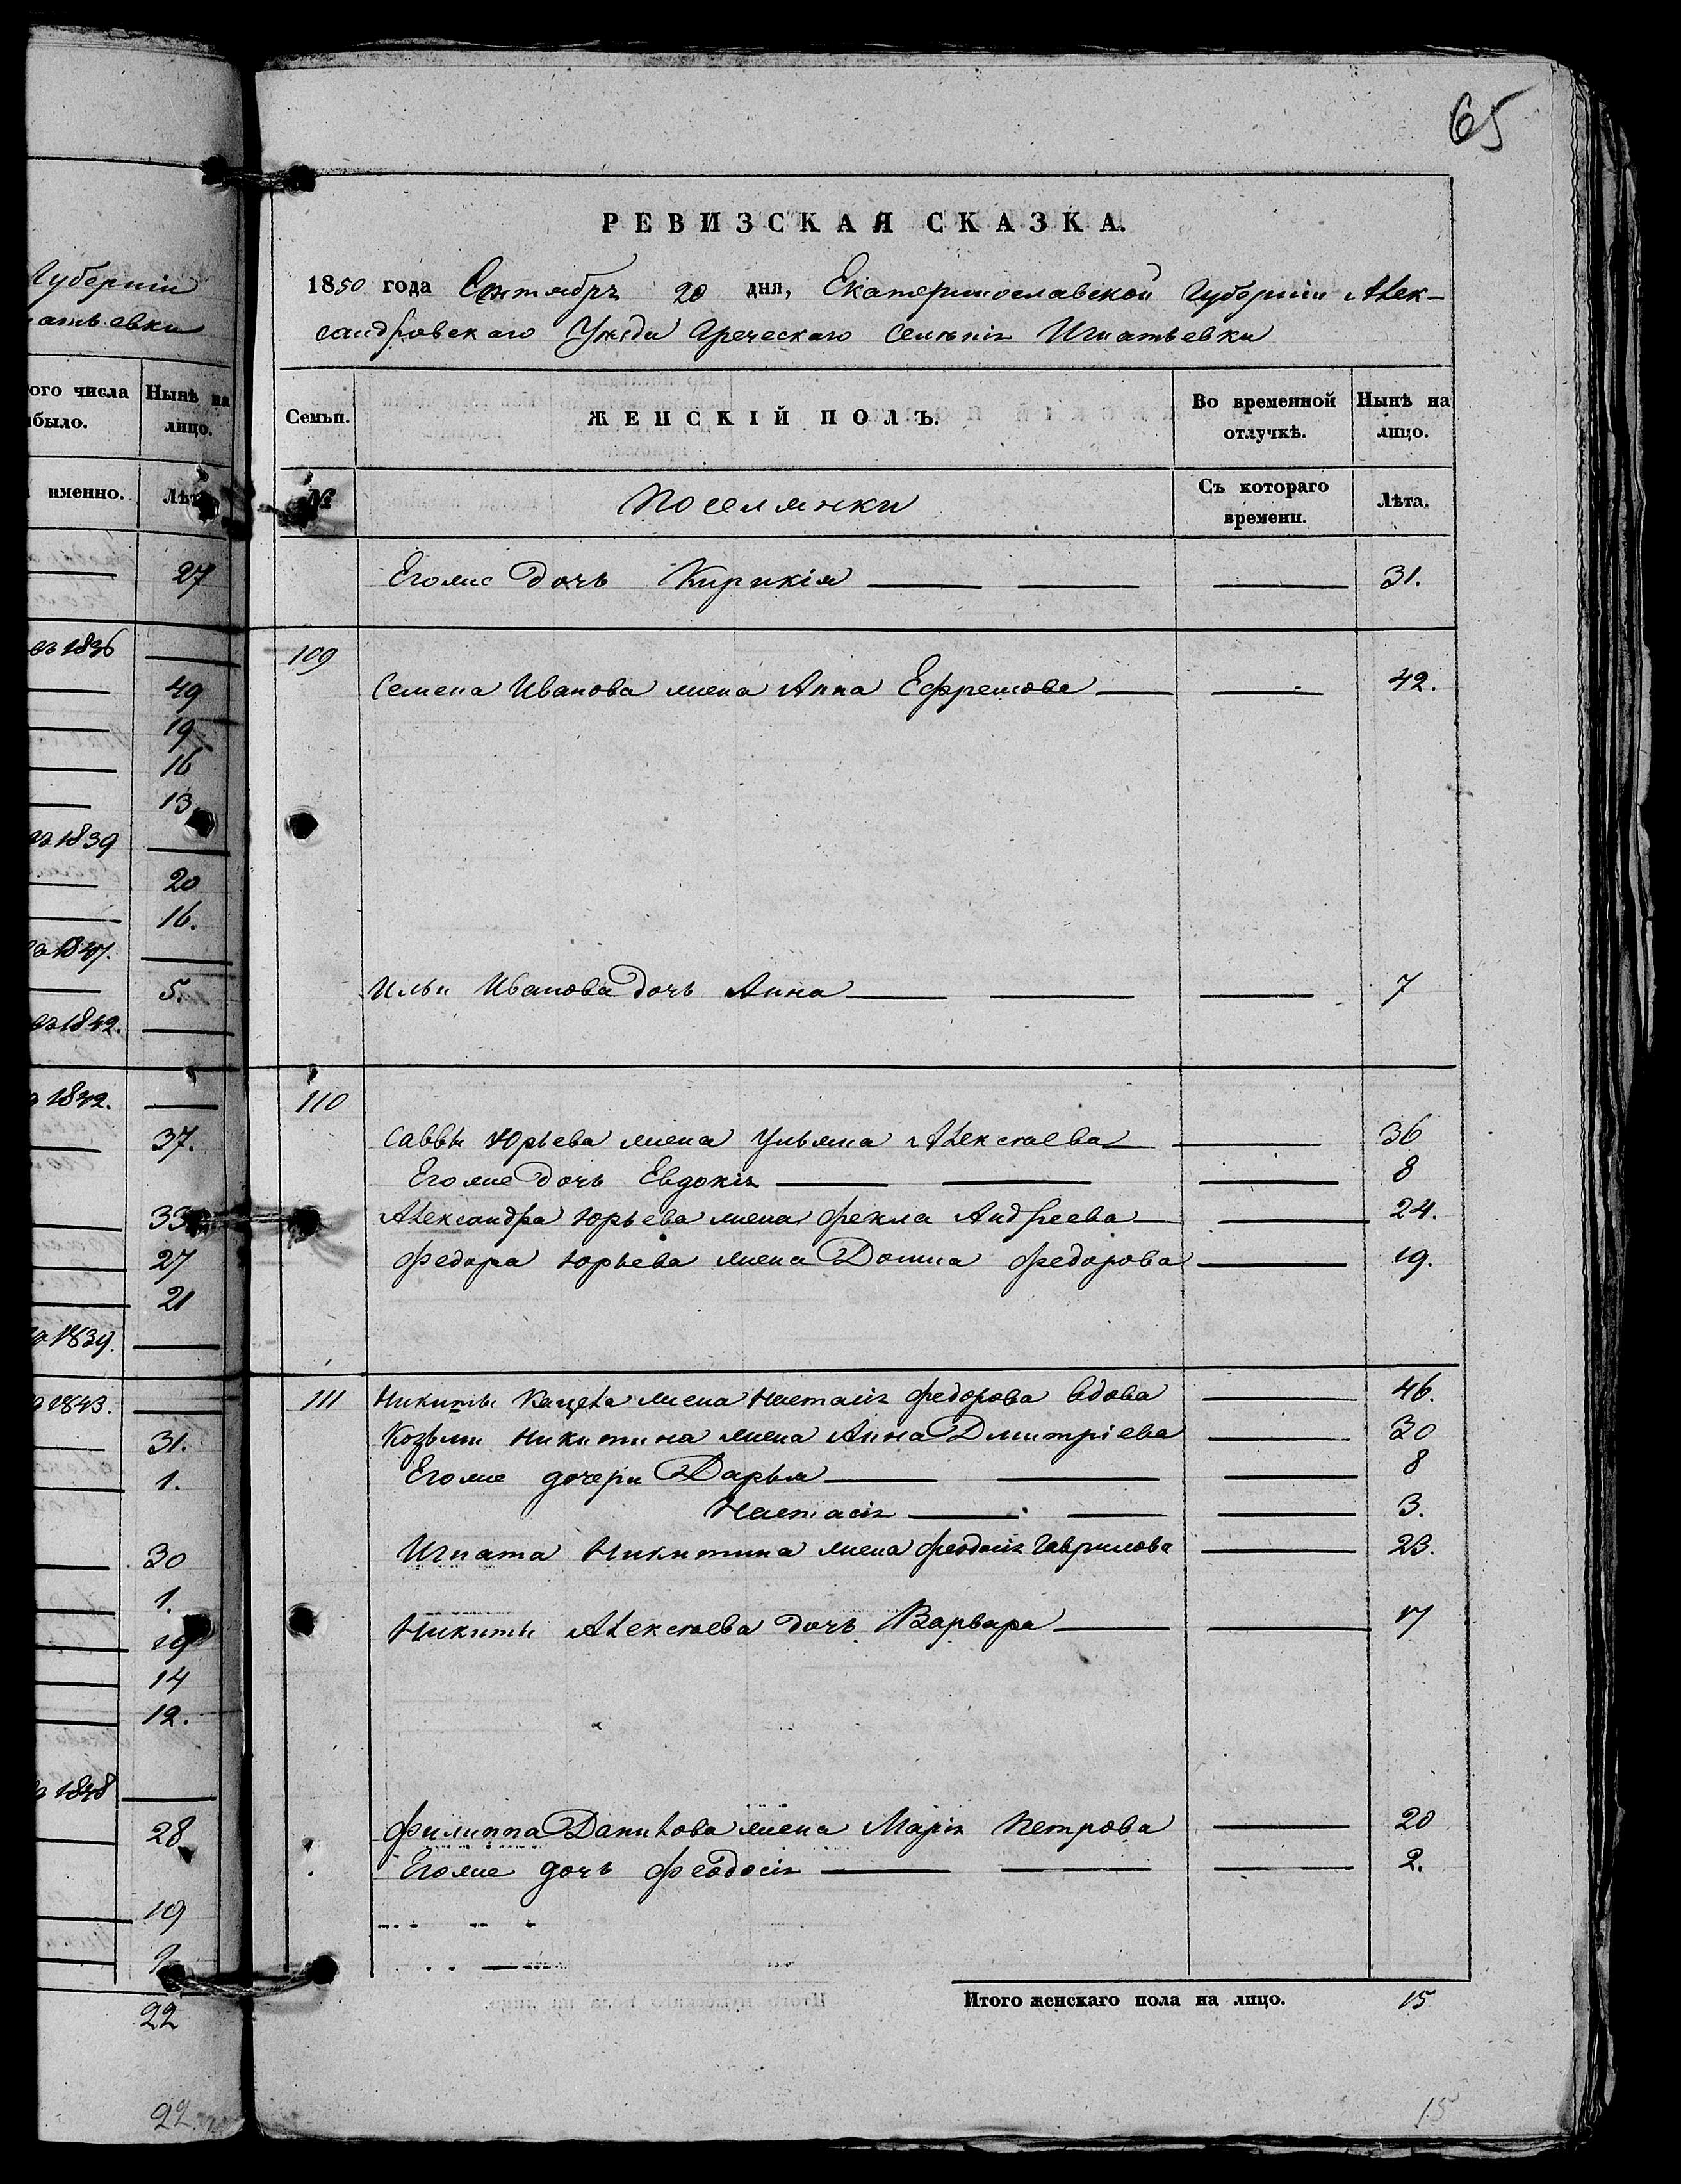 65
Губерніи
атьевки
ого числа
было.
Нынѣ на
лицо.
именно.
Лѣта
27
1836
49
19
16
13
1839
20
16.
1847.
5.
1842.
1842.
37.
33
27
21
1839.
1843.
31.
1.
30
1.
19
14
12.
1848
28
19
22
22
РЕВИЗСКАЯ СКАЗКА.
1850 года Сентября 20 дня, Екатеринославской Губерніи Алек-
сандровскаго Уѣзда Греческаго Селенія Игнатьевки
Семьи.
ЖЕНСКІЙ ПОЛЪ.
Во временной отлучкѣ.
Нынѣ на лицо.
№
Поселянки
Съ котораго времени.
Лѣта.
Егоже дочь Кирикія 31.
109
Семена Иванова жена Анна Ефремова 42.
Ильи Иванова дочь Анна 7
110
Саввы Юрьева жена Ульяна Алексѣева 36
Егоже дочь Евдокія 8
Александра Юрьева жена Фекла Андреева 24.
Федора Юрьева жена Домна Федорова 19.
111 Никиты Кацека жена Настасія Федорова вдова 46.
Козьмы Никитина жена Анна Дмитріева 30
Егоже дочери Дарья 8
Настасія 3.
Игната Никитина жена Феодосія Гаврилова 23.
Никиты Алексѣева дочь Варвара 17
Филиппа Данилова жена Марія Петрова 20
Егоже дочь Феодосія 2.
Итого женскаго пола на лицо. 15
15